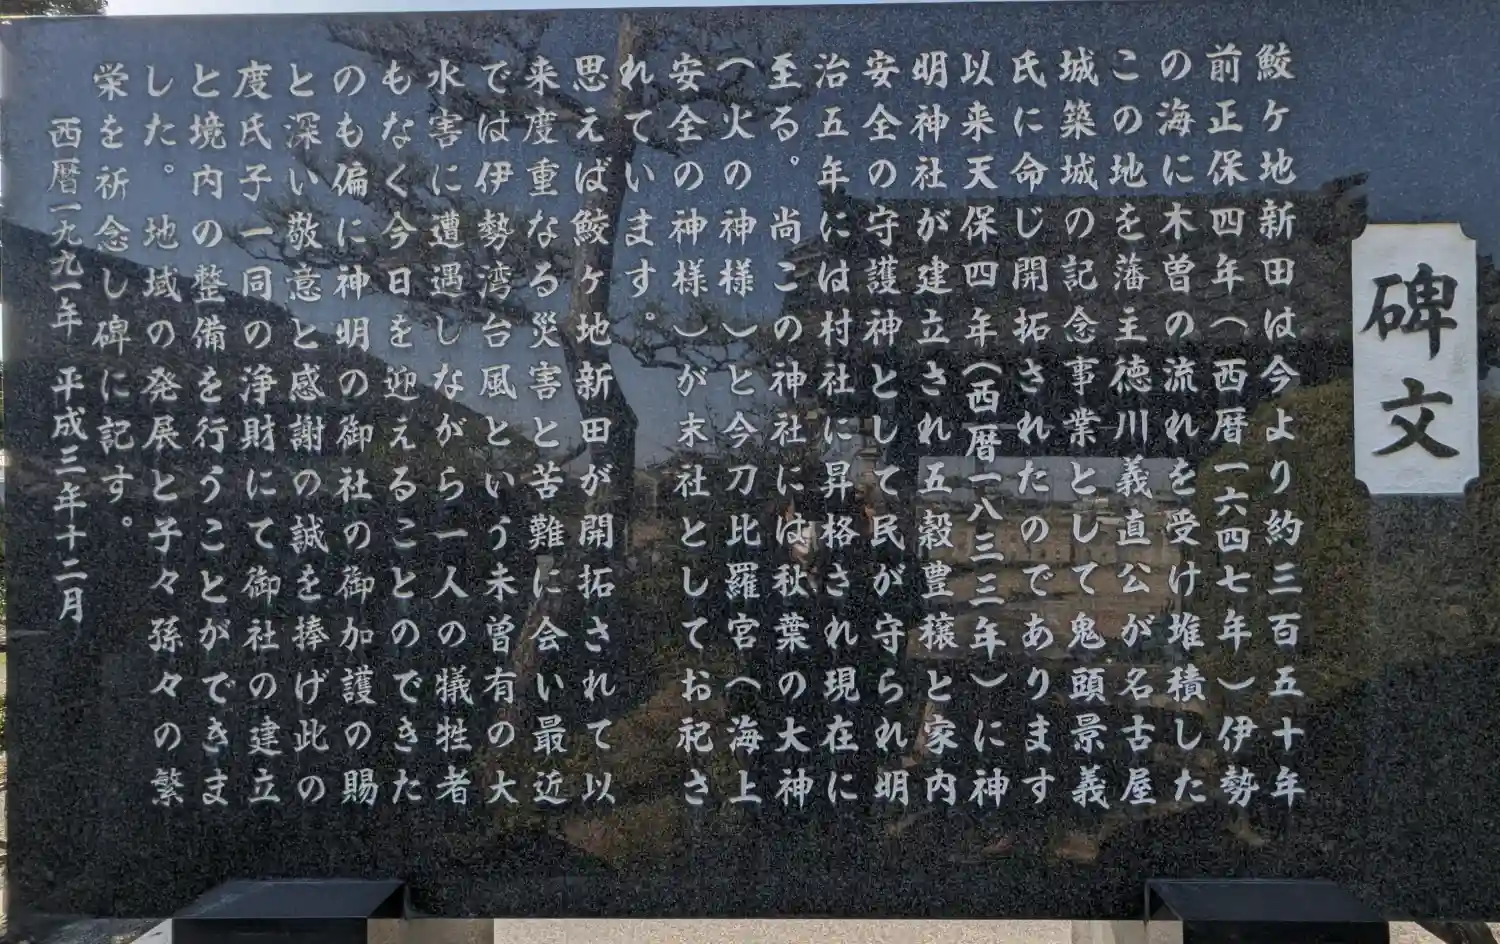 碑文
鮫ケ地新田は今より約三百五十年
前正保四年(西暦一六四七年)伊勢
の海に木曽の流れを受け堆積した
この地を藩主徳川義直公が名古屋
城築城の記念事業として鬼頭景義
氏に命じ開拓されたのであります
以来天保四年(西暦一八三三年)に神
明神社が建立され五穀豊穣と家内
安全の守護神として民が守られ明
治五年には村社に昇格され現在に
至る。尚この神社には秋葉の大神
(火の神様)と今刀比羅宮(海上
安全の神様)が末社としてお祀さ
れています。
思えば鮫ヶ地新田が開拓されて以
来度重なる災害と苦難に会い最近
では伊勢湾台風という未曽有の大
水害に遭遇しながら一人の犠牲者
もなく今日を迎えることのできた
のも偏に神明の御社の御加護の賜
と深い敬意と感謝の誠を捧げ此の
度氏子一同の浄財にて御社の建立
と境内の整備を行うことができま
した。地域の発展と子々孫々の繁
栄を祈念し碑に記す。
西暦一九九一年 平成三年十二月